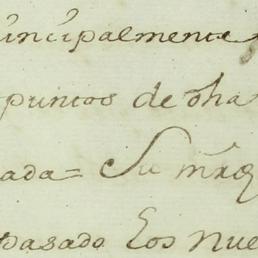 principalmente
puntos de dha
ada = Su mrd
pasado Los nue